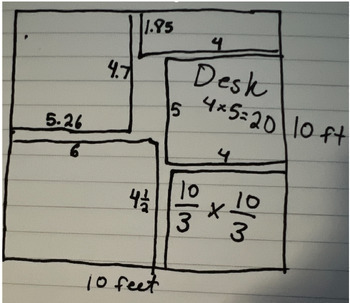 1.85
4
4.7
Desk
5
4×5=20
10 ft
5.26
6
4
4 1/2
10/3 × 10/3
10 feet